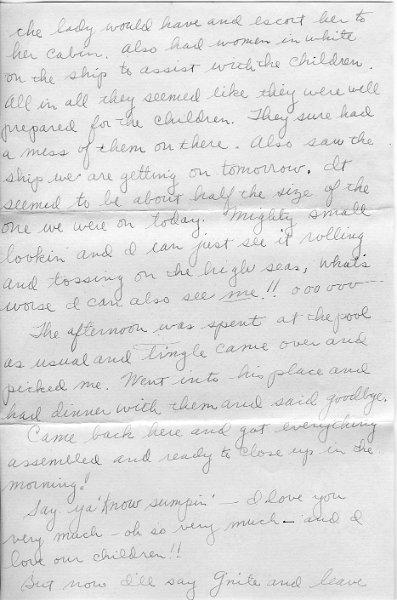 the lady would have and escort her to
her cabin. Also had women in white
on the ship to assist with the children.
All in all they seemed like they were well
prepared for the children. They sure had
a mess of them on there. Also saw the
ship we are getting on tomorrow. It
seemed to be about half the size of the
one we were on today. Mighty small
lookin and I can just see it rolling
and tossing on the high seas, what's
worse I can also see me!! ooo ooo
The afternoon was spent at the pool
as usual and Tingle came over and
picked me. Went into his place and
had dinner with them and said goodbye.
Came back here and got everything
assembled and ready to close up in the
morning!
Say ya' know sumpin' — I love you
very much — oh so very much — and I
love our children!!
But now I'll say G'nite and leave